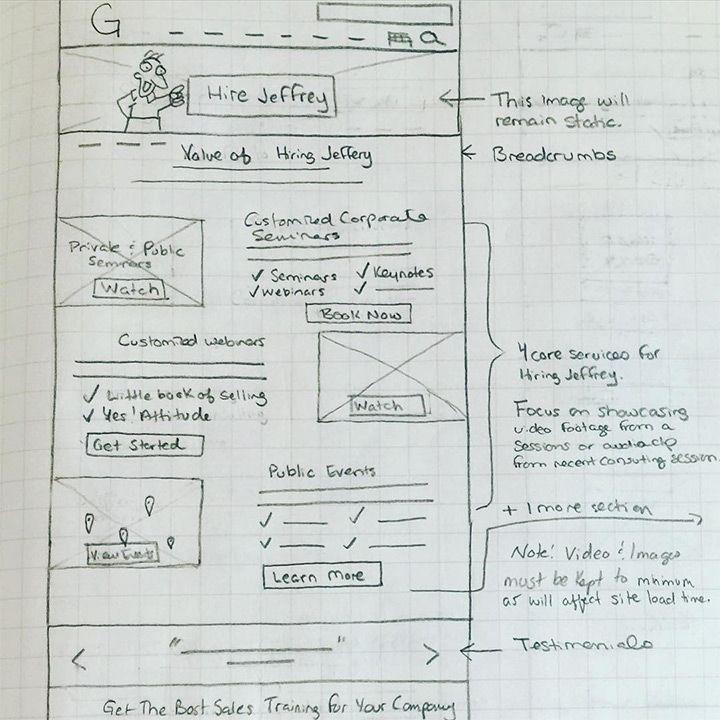 G
Hire Jeffrey
This image will
remain static.
Value of Hiring Jeffery
Breadcrumbs
Private & Public
Seminars
Watch
Customized Corporate
Seminars
✓ Seminars ✓ Keynotes
✓ Webinars ✓
Book Now
Customized Webinars
✓ Little book of selling
✓ Yes! Attitude
Get Started
Watch
4 core services for
Hiring Jeffrey.
Focus on showcasing
video footage from a
sessions or audio clip
from recent consulting session.
Public Events
✓ ✓
✓ ✓
View Events
Learn More
+ 1 more section
Note! Video & Images
must be kept to minimum
as will affect site load time.
" "
< >
Testimonials
Get The Best Sales Training For Your Company